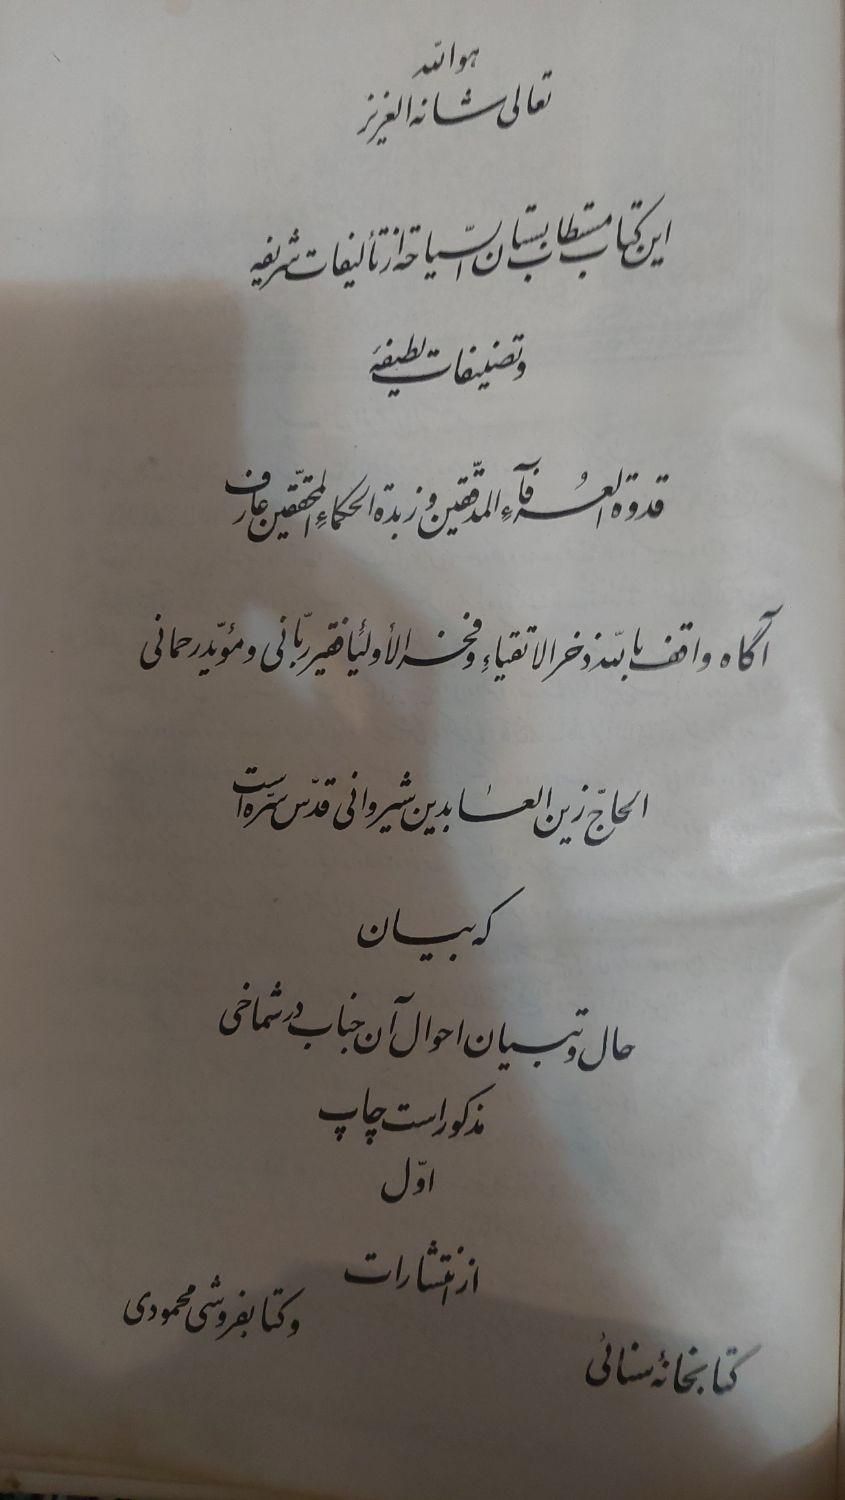 هوالله
تعالی شانه العزیز
این کتاب مستطاب بستان السّیاحة از تألیفات شریفه
و تصنیفات لطیفهٔ
قدوة العُرفآءِ المدقّقین و زبدة الحکماءِ المحقّقین عارف
آگاه واقف بالله ذخر الاتقیاءِ و فخر الأولیٰا فقیر ربّانی و مؤیّد رحمانی
الحاجّ زین العابدین شیروانی قدّس سرّه است
که ببیان
حال و تبیان احوال آن جناب در شماخی
مذکور است چاپ
اوّل
از انتشارات
و کتابفروشی محمودی
کتابخانهٔ سنائی